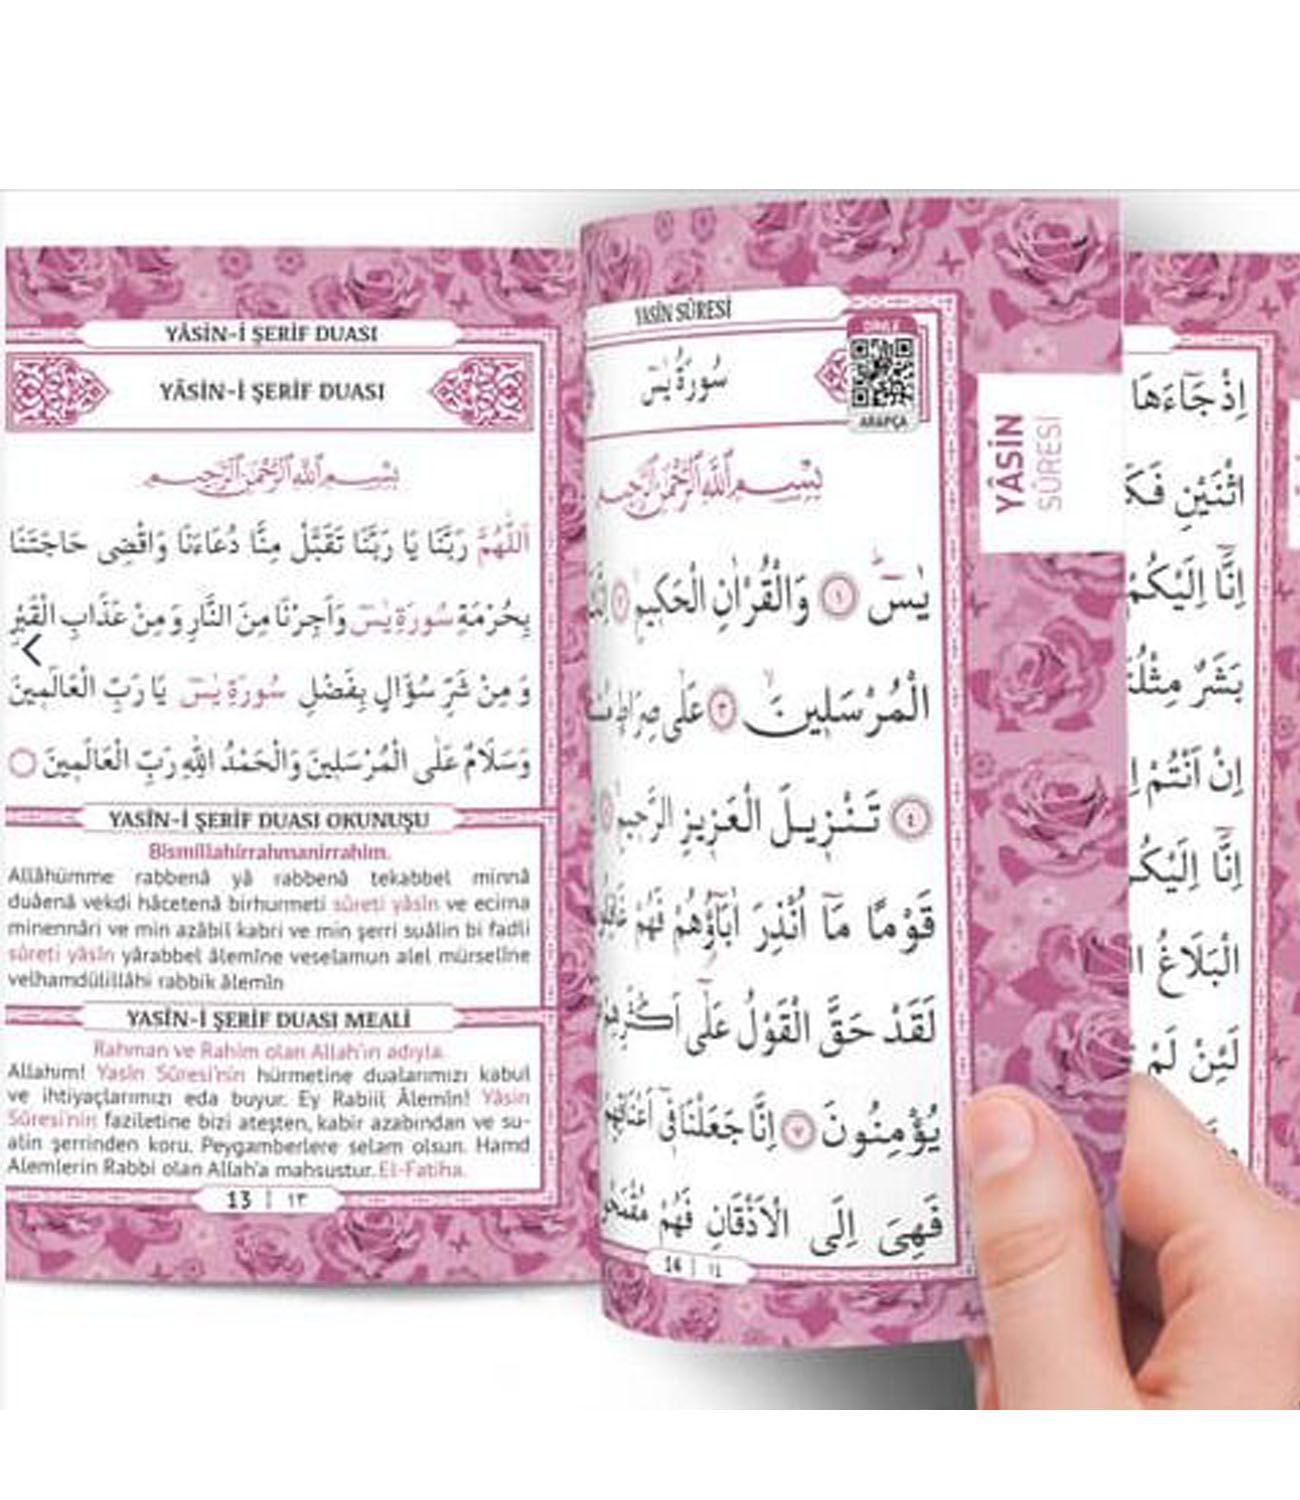 YÂSİN-İ ŞERİF DUASI
YÂSİN-İ ŞERİF DUASI
بِسْمِ اللّٰهِ الرَّحْمٰنِ الرَّحِيمِ
اَللّٰهُمَّ رَبَّنَا يَا رَبَّنَا تَقَبَّلْ مِنَّا دُعَاءَنَا وَاقْضِى حَاجَتَنَا
بِحُرْمَةِ سُورَةِ يٰسٓ وَاَجِرْنَا مِنَ النَّارِ وَمِنْ عَذَابِ الْقَبْرِ
وَمِنْ شَرِّ سُؤَالٍ بِفَضْلِ سُورَةِ يٰسٓ يَا رَبَّ الْعَالَمِينَ
وَسَلَامٌ عَلَى الْمُرْسَلِينَ وَالْحَمْدُ لِلّٰهِ رَبِّ الْعَالَمِينَ
YASİN-İ ŞERİF DUASI OKUNUŞU
Bismillahirrahmanirrahim.
Allâhümme rabbenâ yâ rabbenâ tekabbel minnâ
duâenâ vekdi hâcetenâ birhurmeti sûreti yâsîn ve ecirna
minennâri ve min azâbil kabri ve min şerri suâlin bi fadli
sûreti yâsîn yârabbel âlemîne veselamun alel mürselîne
velhamdülillâhi rabbik âlemîn
YASİN-İ ŞERİF DUASI MEALİ
Rahman ve Rahim olan Allah'ın adıyla.
Allahım! Yasin Sûresi'nin hürmetine dualarımızı kabul
ve ihtiyaçlarımızı eda buyur. Ey Rabiil Âlemin! Yâsin
Sûresi'nin faziletine bizi ateşten, kabir azabından ve su-
alin şerrinden koru. Peygamberlere selam olsun. Hamd
Alemlerin Rabbi olan Allah'a mahsustur. El-Fatiha.
13 | ١٣
YASİN SÛRESİ
سُورَةُ يٰسٓ
DİNLE
ARAPÇA
بِسْمِ اللّٰهِ الرَّحْمٰنِ الرَّحِيمِ
يٰسٓ ١ وَالْقُرْاٰنِ الْحَكِيمِ ٢
الْمُرْسَلِينَ ٣ عَلٰى صِرَاطٍ
٤ تَنْزِيلَ الْعَزِيزِ الرَّحِيمِ
قَوْمًا مَٓا اُنْذِرَ اٰبَٓاؤُ۬هُمْ فَهُمْ
لَقَدْ حَقَّ الْقَوْلُ عَلٰٓى اَكْثَرِهِمْ
يُؤْمِنُونَ ٧ اِنَّا جَعَلْنَا فِٓى اَعْنَاقِهِمْ
فَهِىَ اِلَى الْاَذْقَانِ فَهُمْ
14 | ١٤
YÂSİN
SÛRESİ
اِذْ جَٓاءَهَا
اثْنَيْنِ
اِنَّٓا اِلَيْكُمْ
بَشَرٌ
اِنْ اَنْتُمْ
اِنَّٓا
الْبَلَاغُ
لَئِنْ لَمْ